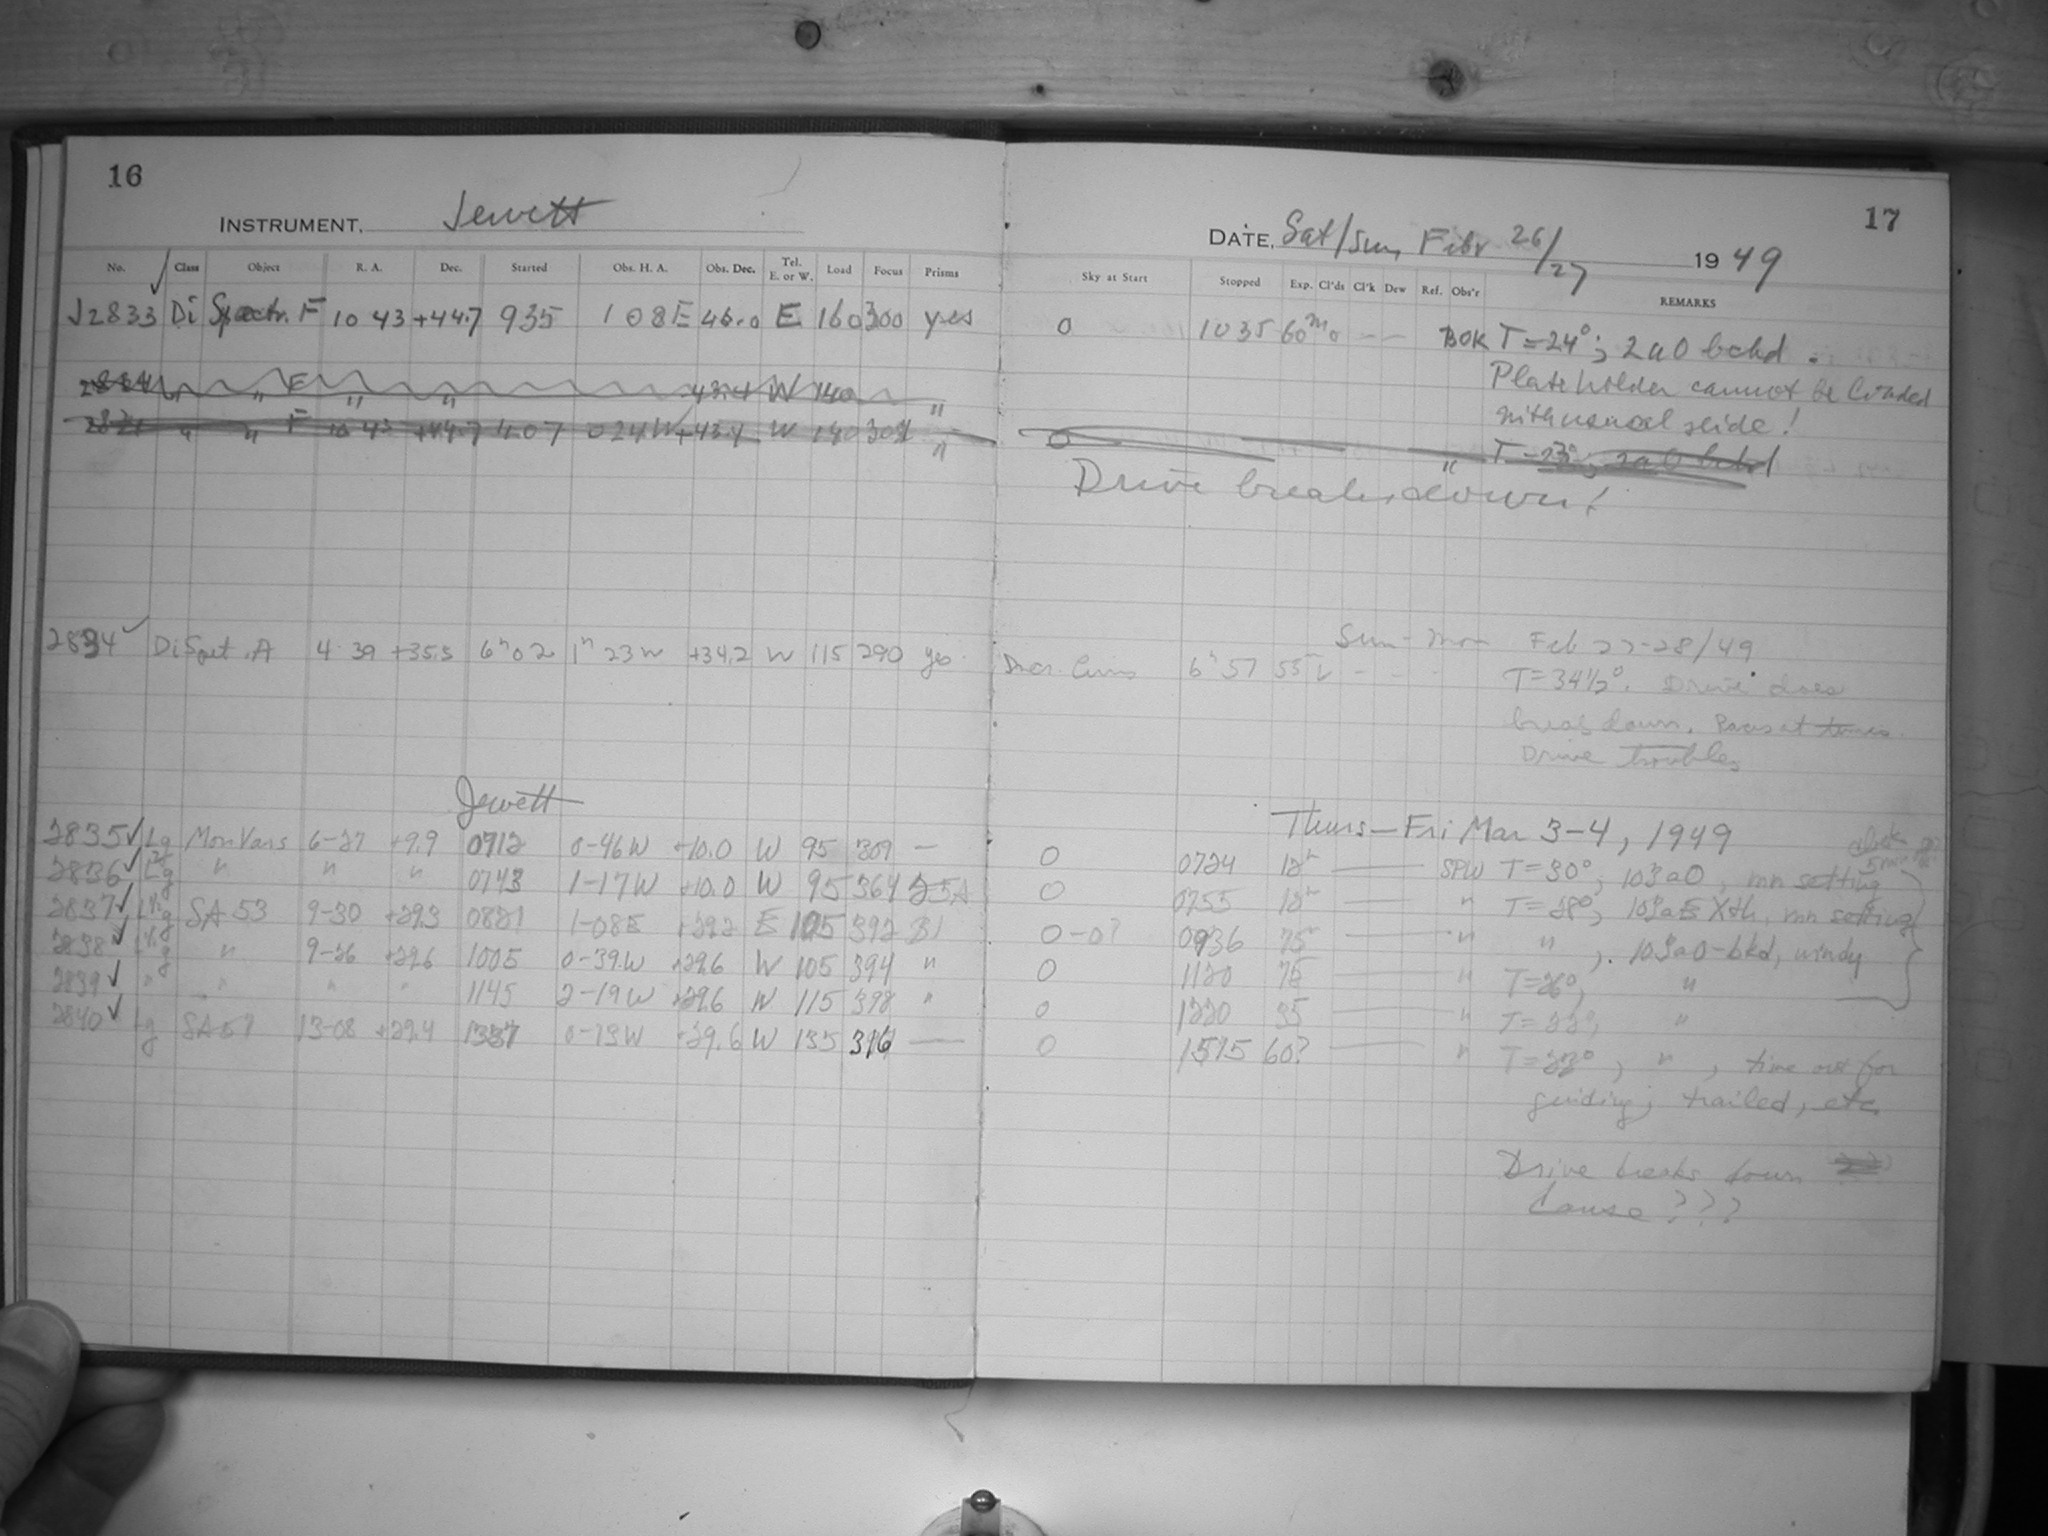 16
INSTRUMENT, Jewett
No. Class Object R. A. Dec. Started Obs. H. A. Obs. Dec. Tel. E. or W. Load Focus Prisms
J2833 Di Spectr. F 10 43 +44.7 935 1 08E 46.0 E 160 300 yes
2834 " F " " 43.4 W 140 "
" " F 10 43 +44.7 1407 0 24W +43.4 W 140 301 "
2834 Di Spet. A 4 39 +35.5 6h02 1h 23W +34.2 W 115 290 yes
Jewett
2835 Lg Mon Vars 6-27 +9.9 0712 0-46W +10.0 W 95 309 —
2836 Lg " " " 0743 1-17W +10.0 W 95 364 25A
2837 Lg SA 53 9-30 +29.3 0821 1-08E +29.2 E 105 392 B1
2838 Lg " 9-26 +29.6 1005 0-39W +29.6 W 105 394 "
2839 " " " " 1145 2-19W +29.6 W 115 398 "
2840 Lg SA 57 13-08 +29.4 1337 0-13W +29.6 W 135 316 —
17
DATE, Sat/Sun, Febr 26/27 1949
Sky at Start Stopped Exp. Cl'ds Cl'k Dew Ref. Obs'r REMARKS
0 1035 60m 0 — — BOK T=24°; 2a0 bckd.
Plateholder cannot be loaded
with usual slide!
0 " T-23°; 2a0 bckd
Drive breaks down!
Sun-Mon Feb 27-28/49
6h57 55 - - T=34½°. Drive does
break down. Races at times.
Drive troubles
Thurs—Fri Mar 3-4, 1949
0 0724 12m — SPW T=30°, 103a0, mn setting
0 0755 12m — " T=28°, 103aE Xth, mn setting
0-0? 0936 75m — " ", 103a0-bkd, windy
0 1120 75 — " T=26°, "
0 1220 35 — " T=22°, "
0 1515 60? — " T=22°, ", time out for
guiding, trailed, etc.
Drive breaks down
Cause???